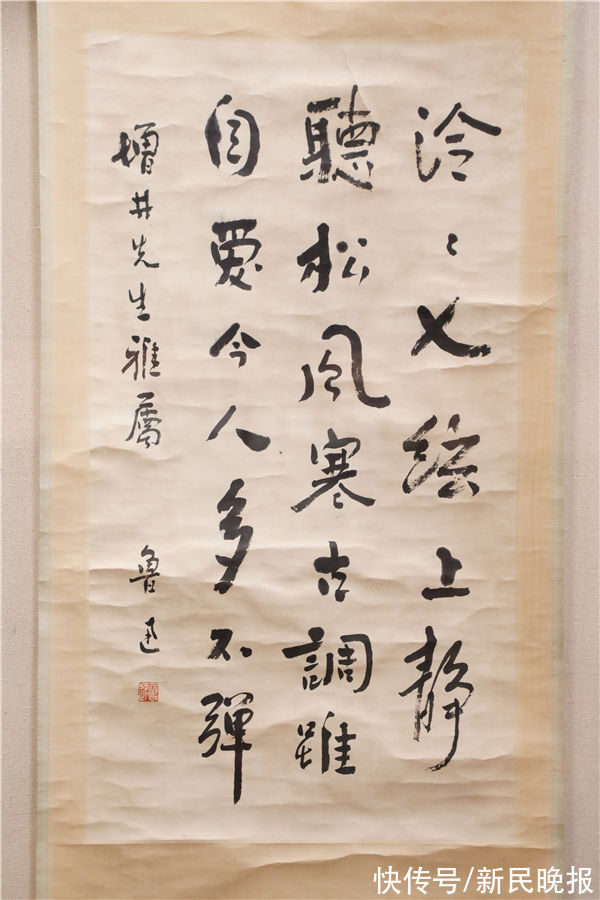 泠〻七絃上靜
聽松風寒古調雖
自愛今人多不彈
增井先生雅屬
魯迅
快传号/新民晚报